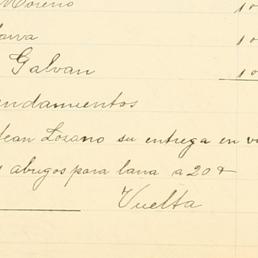 Moreno 10
10
Galvan 10
ndamientos
Jean Lozano su entrega en v
abrigos para lana a 20¢
Vuelta